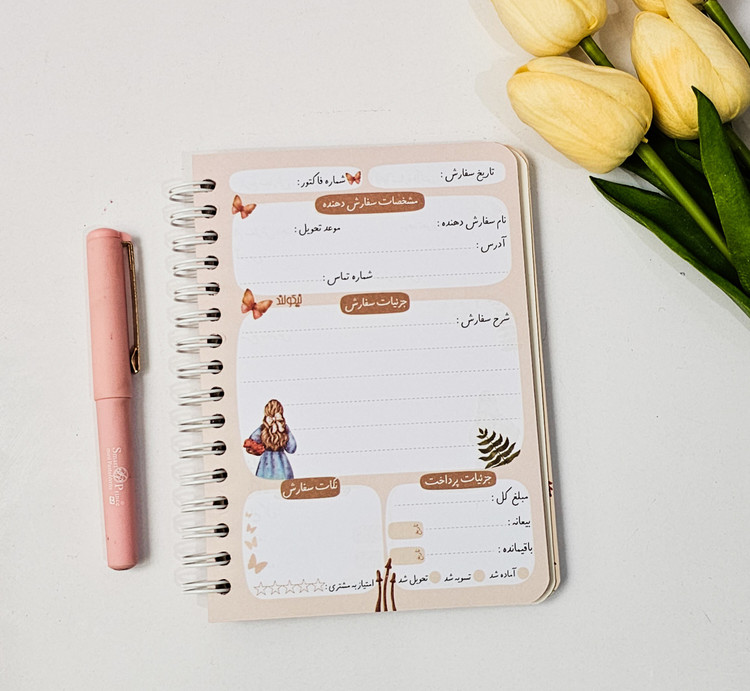 تاریخ سفارش :
شماره فاکتور:
مشخصات سفارش دهنده
نام سفارش دهنده :
موعد تحویل :
آدرس :
شماره تماس :
جزئیات سفارش
شرح سفارش :
جزئیات پرداخت
مبلغ کل :
بیعانه :
باقیمانده :
آماده شد
تسویه شد
تحویل شد
نکات سفارش
امتیاز به مشتری :